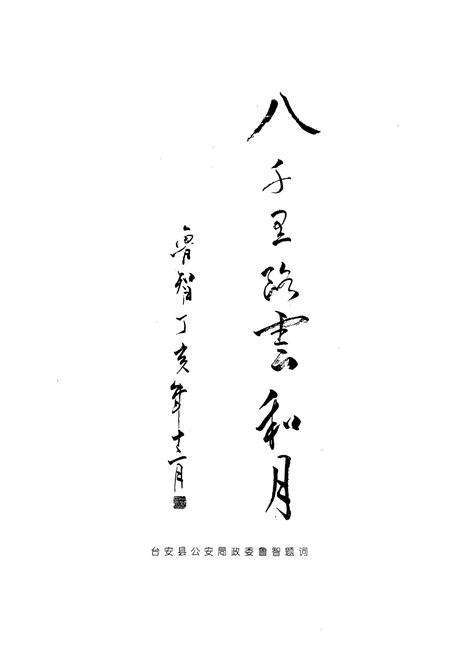 八千里路雲和月
魯智丁亥年十二月
台安县公安局政委鲁智题词